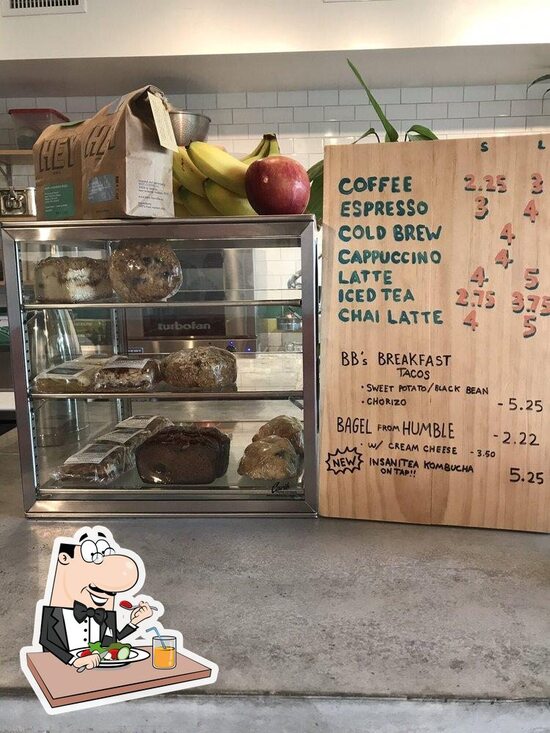 HEY
turbofan
S L
COFFEE 2.25 3
ESPRESSO 3 4
COLD BREW 4
CAPPUCCINO 4
LATTE 4 5
ICED TEA 2.75 3.75
CHAI LATTE 4 5
BB's BREAKFAST
TACOS
• SWEET POTATO/BLACK BEAN
• CHORIZO - 5.25
BAGEL FROM HUMBLE - 2.22
• W/ CREAM CHEESE - 3.50
NEW INSANITEA KOMBUCHA
ON TAP!! 5.25